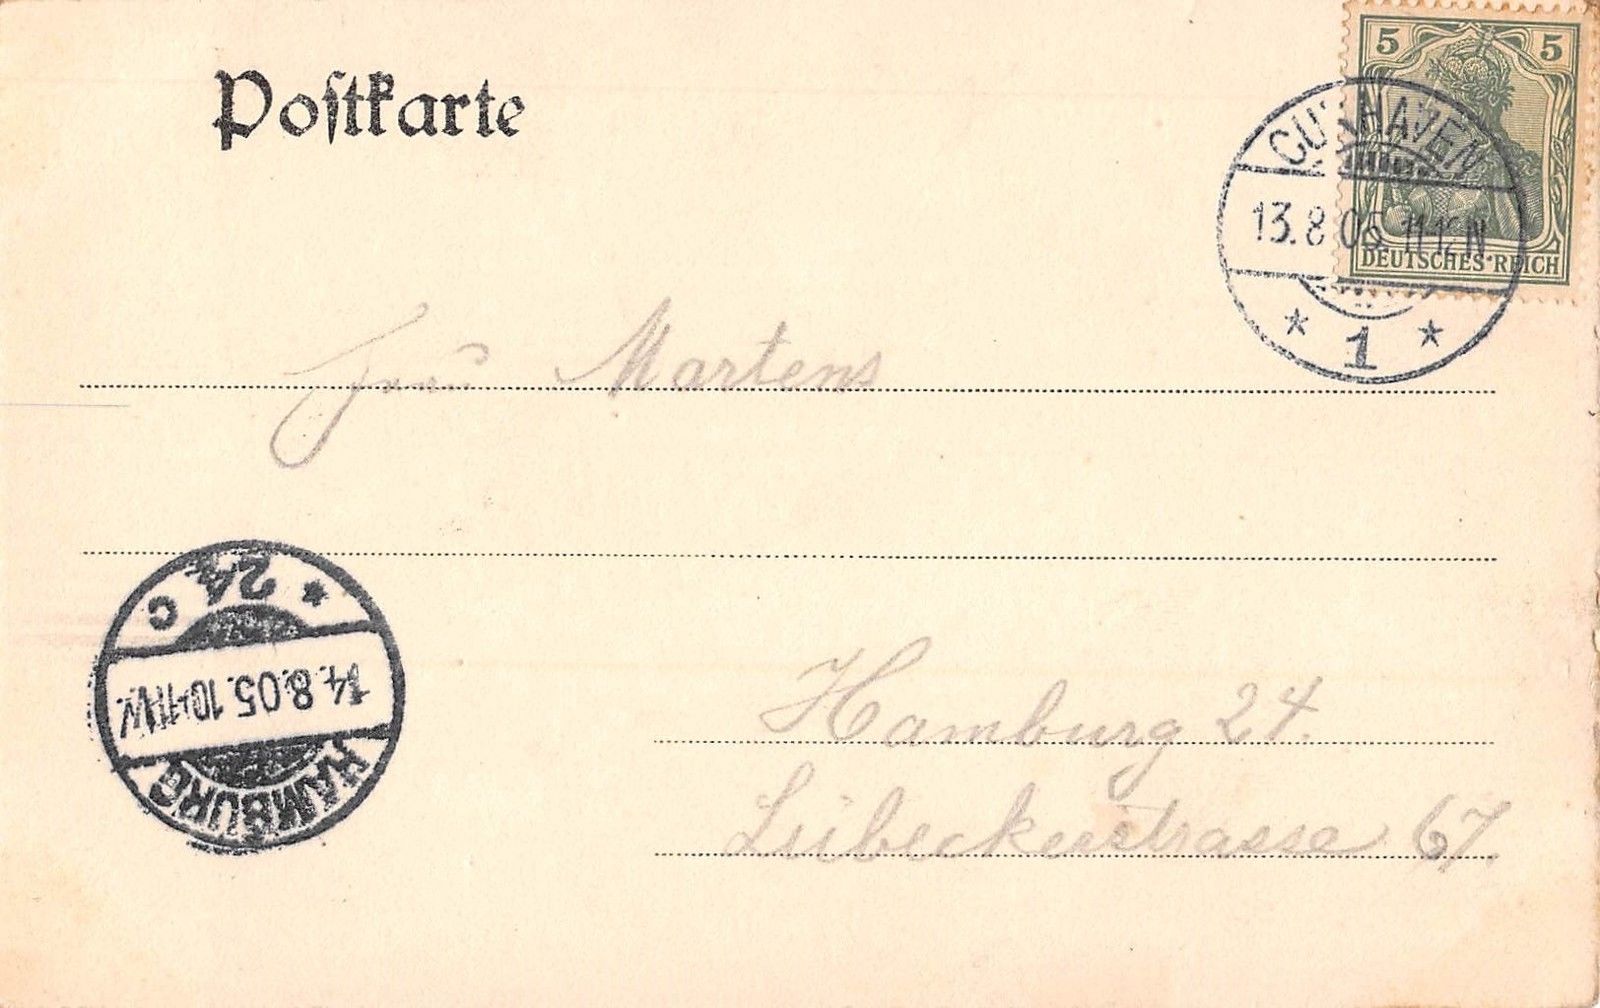 Postkarte
5 5
DEUTSCHES REICH
CUXHAVEN
13.8.05. 11-12 N
* 1 *
Frau Martens
* 24 C
14.8.05. 10-11 V.
HAMBURG
Hamburg 24.
Lübeckerstrasse 67.